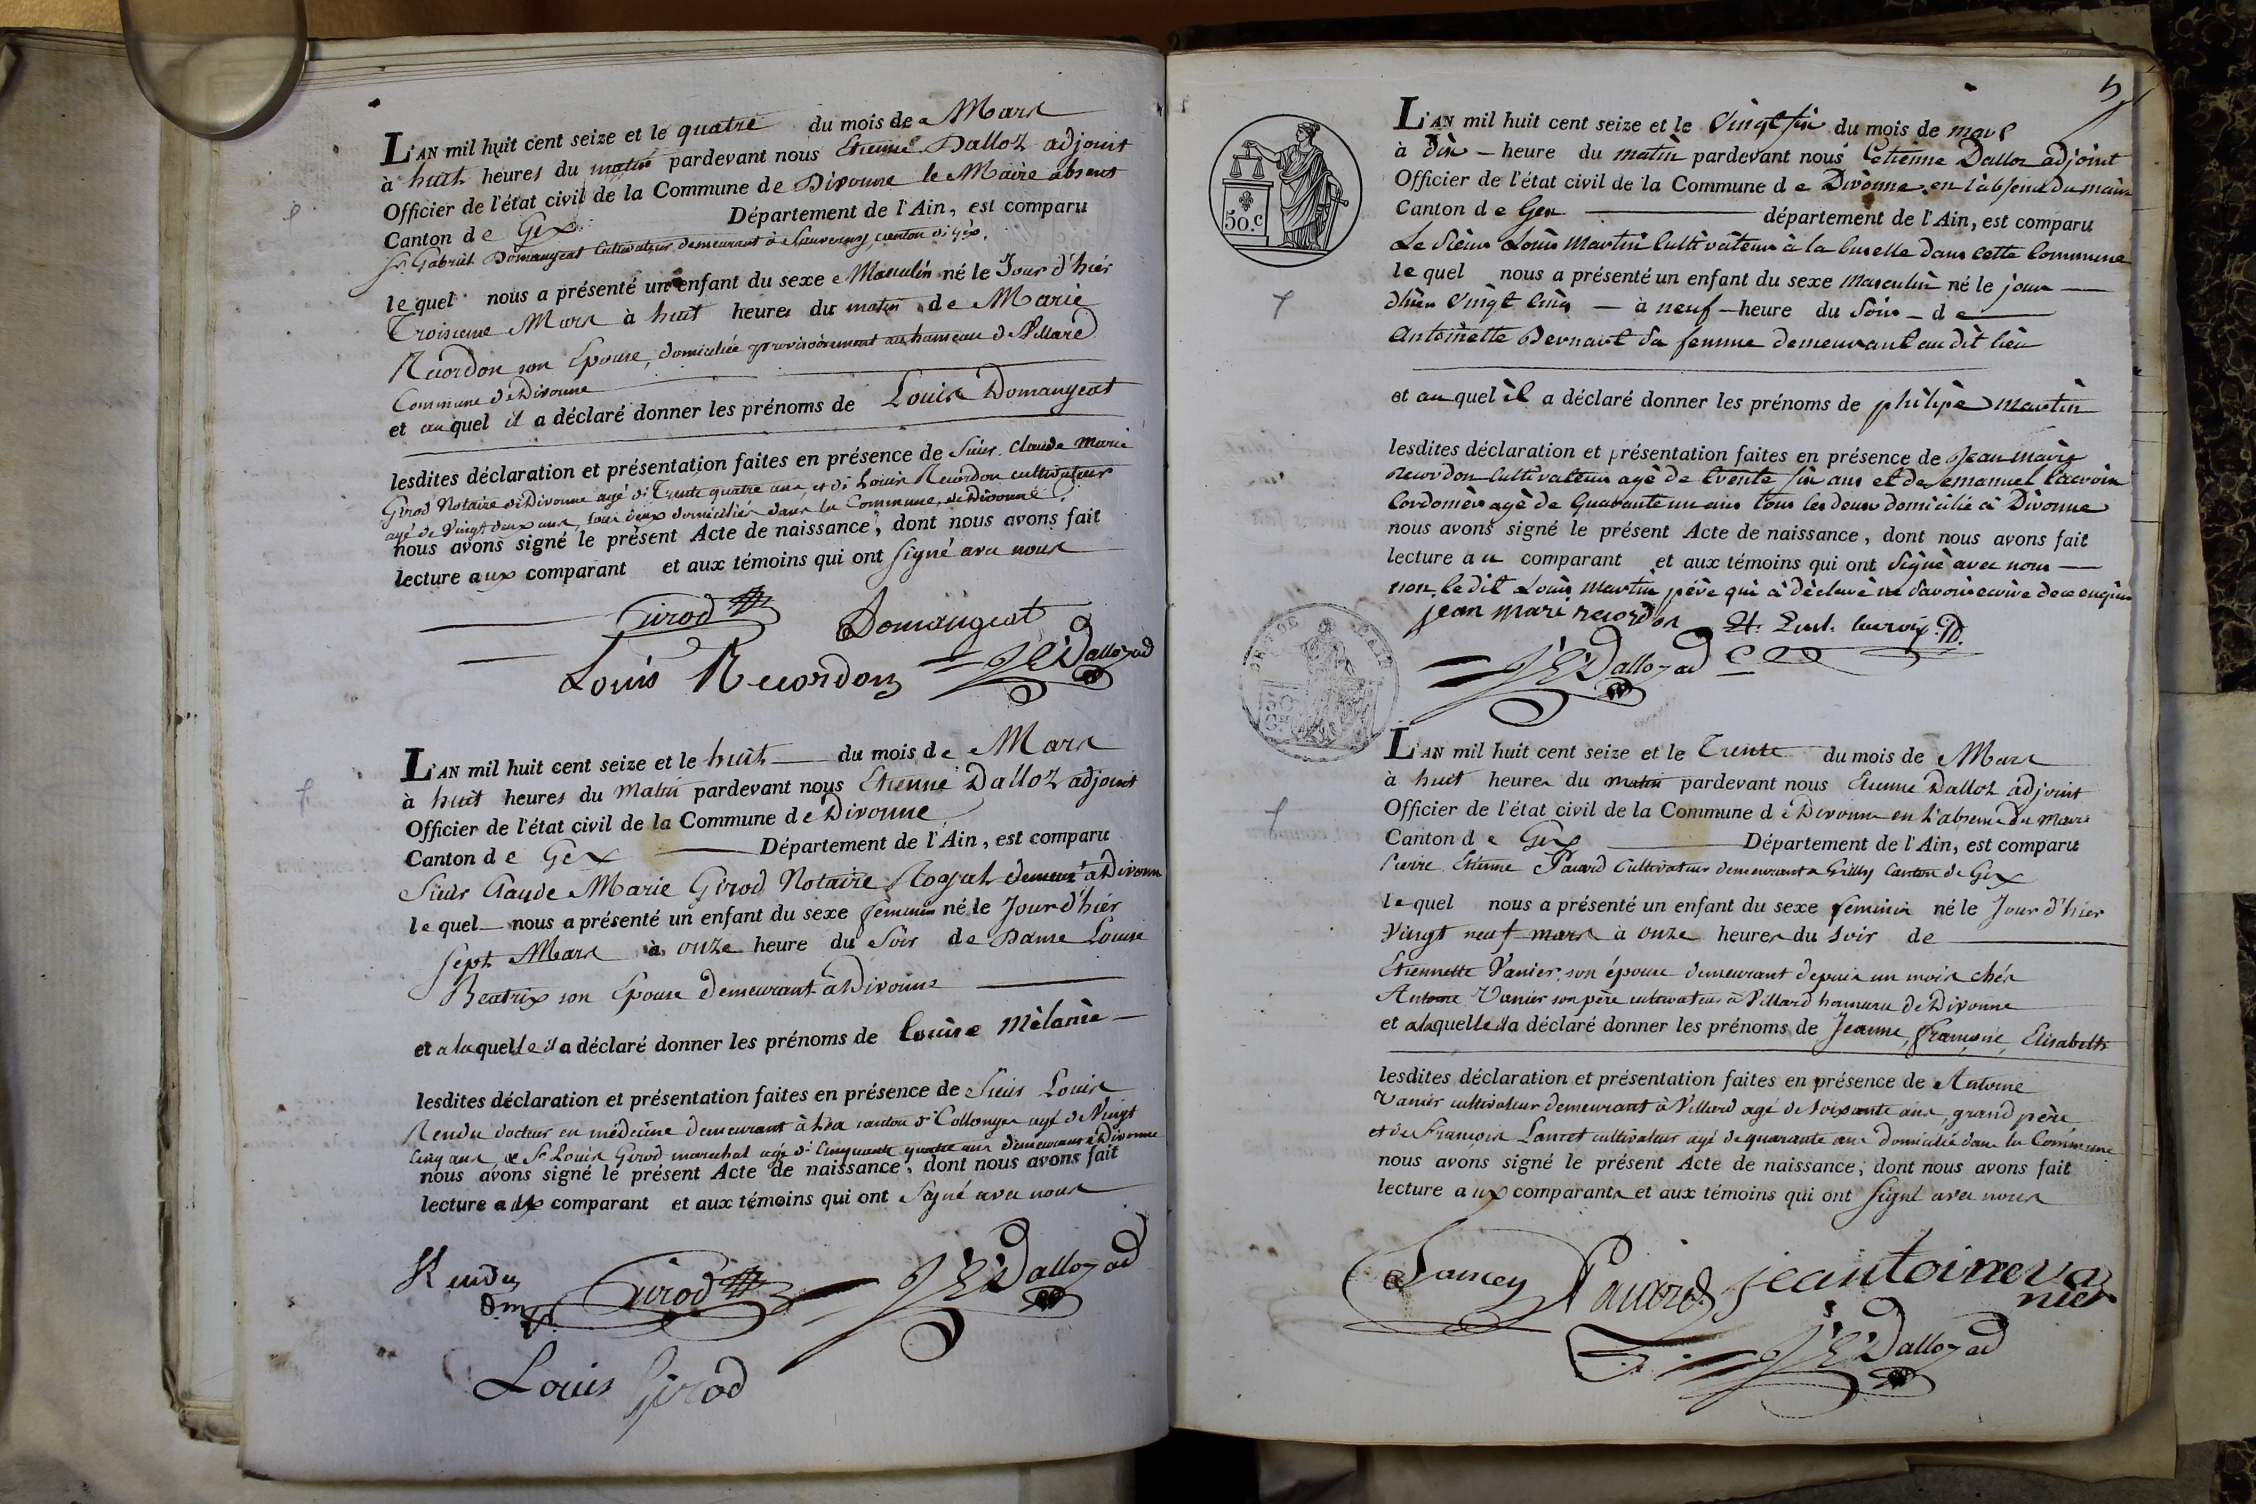 L'AN mil huit cent seize et le quatre du mois de Mars
à huit heures du matin pardevant nous Etienne Dalloz adjoint
Officier de l'état civil de la Commune de Divonne le Maire absent
Canton de Gex Département de l'Ain, est comparu
Sr. Gabriel Domangeat Cultivateur demeurant à Sauverny, canton de gex,
lequel nous a présenté un enfant du sexe Masculin né le Jour d'hiér
Troisieme Mars à huit heures du matin de Marie
Recordon son Epouse, domiciliée provisoirement au hameau de Villard
Commune de Divonne
et auquel il a déclaré donner les prénoms de Louis Domangeat
lesdites déclaration et présentation faites en présence de Sieur Claude Marie
Girod Notaire à Divonne agé de Trente quatre ans, et de Louis Recordon cultivateur
agé de Vingt deux ans, tous deux domiciliés dans la Commune de Divonne
nous avons signé le présent Acte de naissance, dont nous avons fait
lecture aux comparant et aux témoins qui ont signé avec nous
Girod Domangeat
Louis Recordon JE Dalloz ad
L'AN mil huit cent seize et le huit du mois de Mars
à huit heures du Matin pardevant nous Etienne Dalloz adjoint
Officier de l'état civil de la Commune de Divonne
Canton de Gex Département de l'Ain, est comparu
Sieur Claude Marie Girod Notaire Royal demeurt à Divonne
lequel nous a présenté un enfant du sexe féminin né le Jour d'hiér
sept Mars à onze heure du Soir de Dame Louise
Beatrix son Epouse demeurant à Divonne
et a laquelle il a déclaré donner les prénoms de Louise Mèlanie
lesdites déclaration et présentation faites en présence de Sieur Louis
Rendu docteur en médecine demeurant à canton de Collonges agé de Vingt
Cinq ans, & Sr Louis Girod marechal agé de Cinquante quatre ans demeurant à Divonne
nous avons signé le présent Acte de naissance, dont nous avons fait
lecture aux comparant et aux témoins qui ont Signé avec nous
Rendu Girod JE Dalloz ad
d.m.
Louis Girod
5
50.c
L'AN mil huit cent seize et le Vingt six du mois de mars
à dix heure du matin pardevant nous Etienne Dalloz adjoint
Officier de l'état civil de la Commune de Divonne en l'absence du maire
Canton de Gex département de l'Ain, est comparu
Le Sieur Louis Martin Cultivateur à la buselle dans cette Commune
lequel nous a présenté un enfant du sexe Masculin né le jour
dhier Vingt Cinq à neuf heure du Soir de
Antoinette Bernard Sa femme demeurant au dit lieu
et auquel il a déclaré donner les prénoms de philipe martin
lesdites déclaration et présentation faites en présence de Jean marie
Recordon Cultivateur agé de trente six ans et de emanuel Lacroix
Cordonier agé de Quarante un ans tous les deux domicilié à Divonne
nous avons signé le présent Acte de naissance, dont nous avons fait
lecture au comparant et aux témoins qui ont Signé avec nous
non le dit Louis Martin pére qui à déclaré ne Savoir ecrire de ce enquis
jean mari recordon Lacroix
JE Dalloz ad
50
L'AN mil huit cent seize et le Trente du mois de Mars
à huit heures du matin pardevant nous Etienne Dalloz adjoint
Officier de l'état civil de la Commune de Divonne en l'absence du Maire
Canton de Gex Département de l'Ain, est comparu
Pierre Etienne Panard Cultivateur demeurant a Grilly Canton de Gex
lequel nous a présenté un enfant du sexe feminin né le Jour d'hier
Vingt neuf mars à onze heures du soir de
Etiennette Vanier son épouse demeurant depuis un mois chés
Antoine Vanier son père cultivateur à Villard hameau de Divonne
et a laquelle il a déclaré donner les prénoms de Jeanne, françoise, Elisabeth
lesdites déclaration et présentation faites en présence de Antoine
Vanier cultivateur demeurant à Villard agé de soixante ans, grand père
et de François Lancet cultivateur agé de quarante ans domicilié dans la Commune
nous avons signé le présent Acte de naissance, dont nous avons fait
lecture aux comparants et aux témoins qui ont Signé avec nous
Panard jeantoine va
nier
JE Dalloz ad